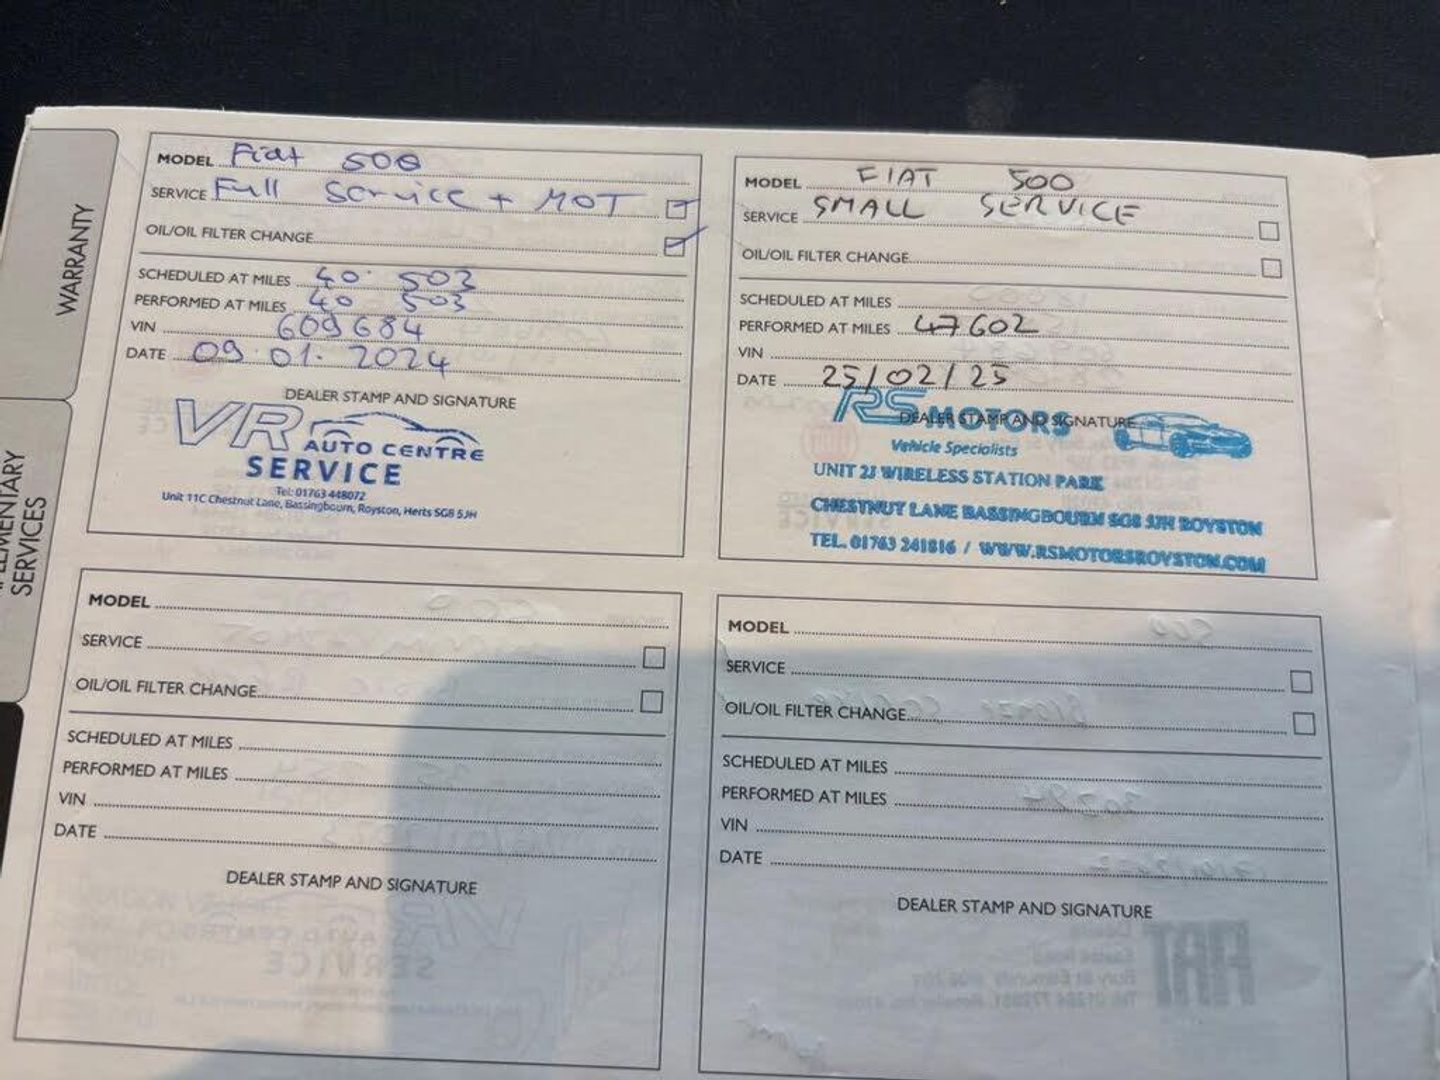 WARRANTY
SERVICES
MODEL Fiat 500
SERVICE Full Service + MOT
OIL/OIL FILTER CHANGE
SCHEDULED AT MILES 40 503
PERFORMED AT MILES 40 503
VIN 609684
DATE 09.01.2024
DEALER STAMP AND SIGNATURE
VR AUTO CENTRE
SERVICE
Tel: 01763 448072
Unit 11C Chestnut Lane, Bassingbourn, Royston, Herts SG8 5JH
MODEL FIAT 500
SERVICE SMALL SERVICE
OIL/OIL FILTER CHANGE
SCHEDULED AT MILES
PERFORMED AT MILES 47602
VIN
DATE 25/02/25
DEALER STAMP AND SIGNATURE
RS MOTORS
Vehicle Specialists
UNIT 2J WIRELESS STATION PARK
CHESTNUT LANE BASSINGBOURN SG8 5JH ROYSTON
TEL. 01763 241816 / WWW.RSMOTORSROYSTON.COM
MODEL
SERVICE
OIL/OIL FILTER CHANGE
SCHEDULED AT MILES
PERFORMED AT MILES
VIN
DATE
DEALER STAMP AND SIGNATURE
MODEL
SERVICE
OIL/OIL FILTER CHANGE
SCHEDULED AT MILES
PERFORMED AT MILES
VIN
DATE
DEALER STAMP AND SIGNATURE